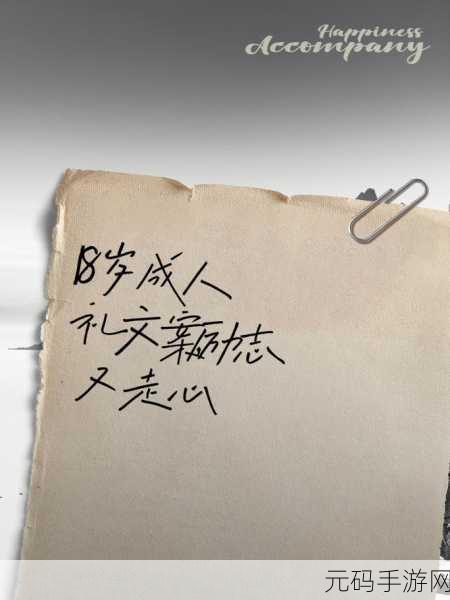 Happiness
Accompany
18岁成人
礼文案励志
又走心
元码手游网